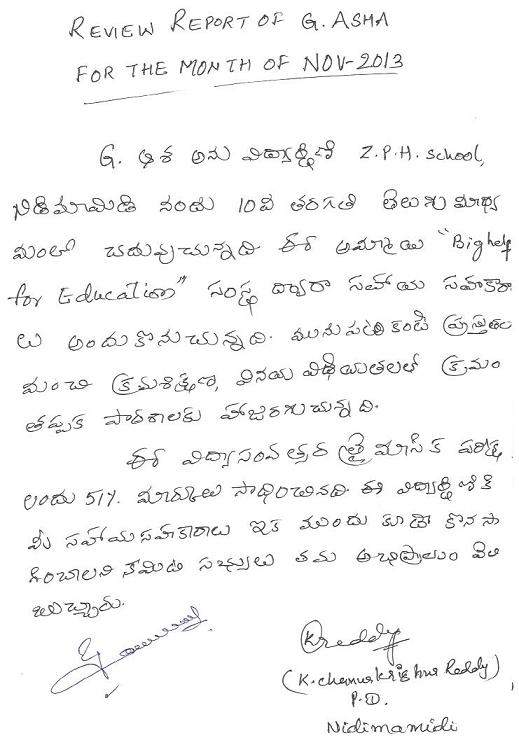 REVIEW REPORT OF G. ASHA
FOR THE MONTH OF NOV-2013
G. ఆశ అను విద్యార్థిని Z.P.H. school,
నిడిమామిడి నందు 10వ తరగతి తెలుగు మాధ్య
మంలో చదువుచున్నది ఈ అమ్మాయి "Big help
for Education" సంస్థ ద్వారా సహాయ సహకారా
లు అందుకొనుచున్నది. మునుపటి కంటే ప్రస్తుతం
మంచి క్రమశిక్షణ, వినయ విధేయతలతో క్రమం
తప్పక పాఠశాలకు హాజరగుచున్నది.
ఈ విద్యాసంవత్సర త్రైమాసిక పరీక్ష
లందు 51%. మార్కులు సాధించినది. ఈ విద్యార్థినికి
మీ సహాయసహకారాలు ఇక ముందు కూడా కొనసా
గించాలని కమిటి సభ్యులు తమ అభిప్రాయం వెలి
బుచ్చారు.
Kreddy
(K. chennakrishna Reddy)
P.D.
Nidimamidi